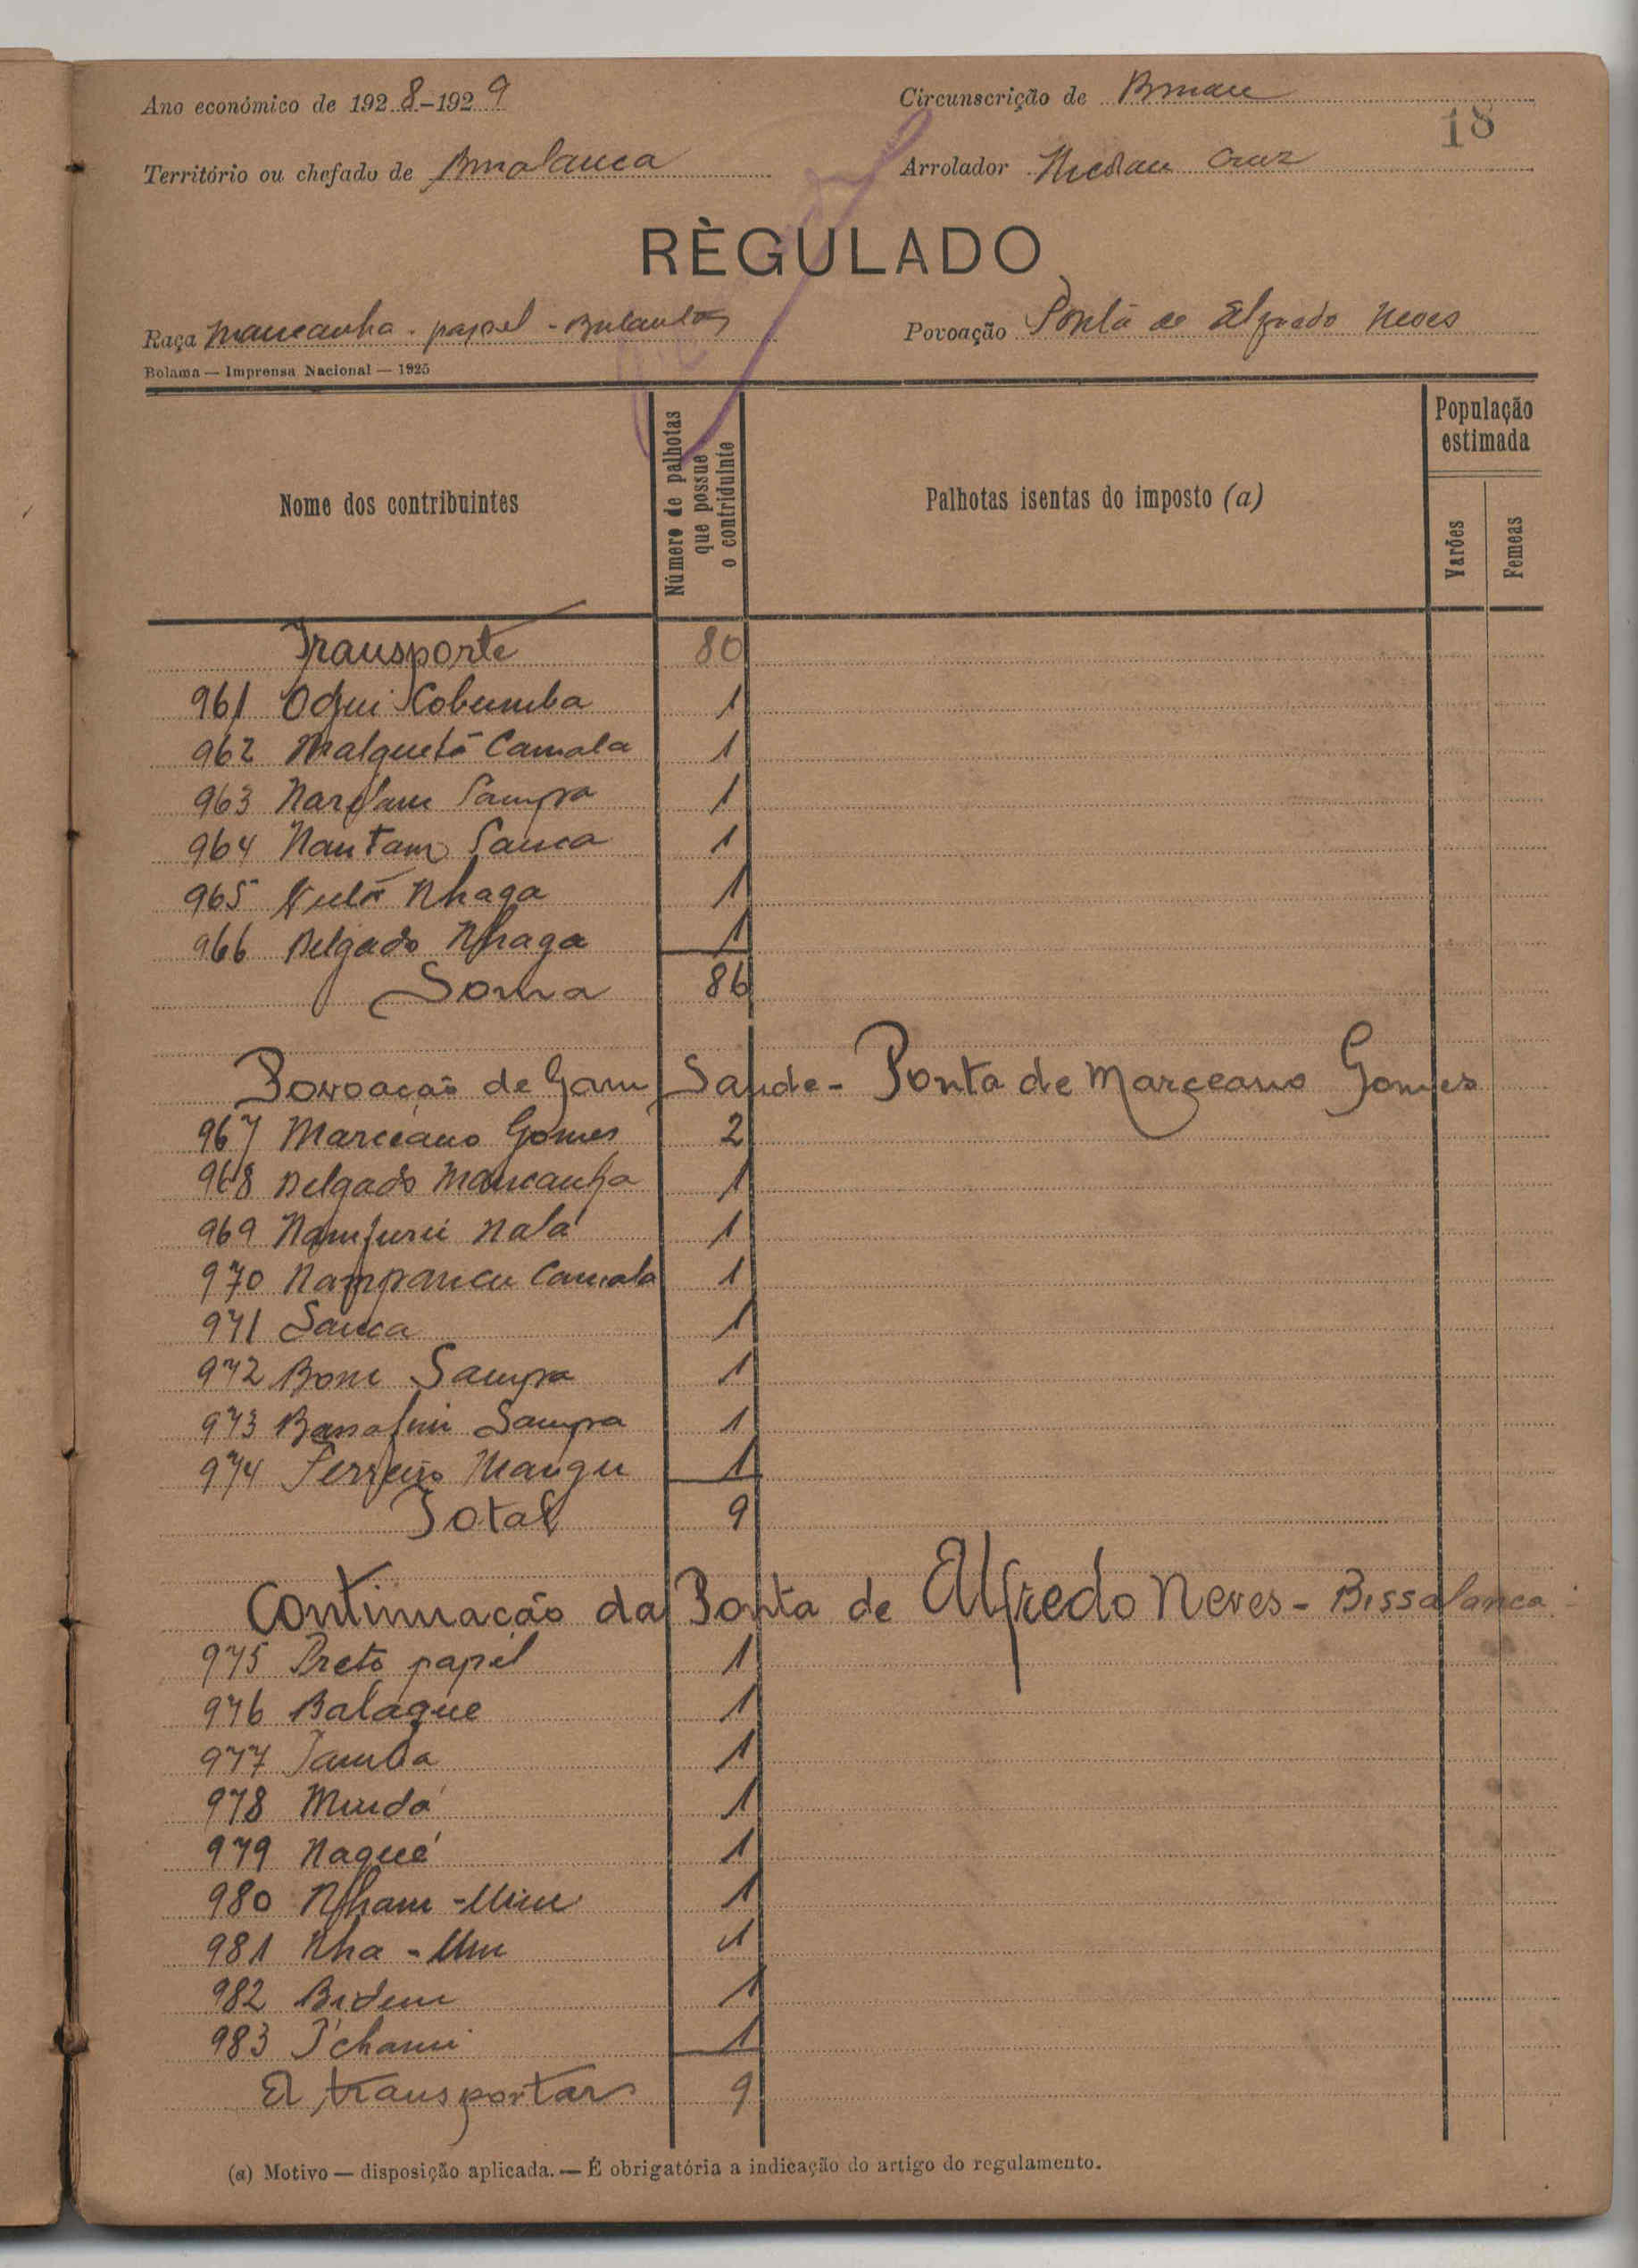 Ano económico de 192 8-192 9
Circunscrição de Bissau
18
Território ou chefado de Bissalanca
Arrolador Nicolau Cruz
RÈGULADO
Raça Mancanha - papel - Balantas
Povoação Ponta de Alfredo Neves
Bolama — Imprensa Nacional — 1925
Nome dos contribuintes
Número de palhotas que possue o contriduinte
Palhotas isentas do imposto (a)
População estimada
Varões
Femeas
Transporte 80
961 Cobumba 1
962 Malguetá Camala 1
963 Sampa 1
964 Nantam Sanca 1
965 Nhaga 1
966 Delgado Nhaga 1
Soma 86
Povoação de Gam Saude - Ponta de Marceano Gomes
967 Marceano Gomes 2
968 Delgado Mancanha 1
969 Nalá 1
970 Nampancu Camala 1
971 Sanca 1
972 Sampa 1
973 Sampa 1
974 Ferreiro 1
Total 9
Continuação da Ponta de Alfredo Neves - Bissalanca
975 Preto papel 1
976 Balaque 1
977 Tamba 1
978 1
979 Naqué 1
980 Nham - 1
981 Nha - 1
982 1
983 1
A transportar 9
(a) Motivo — disposição aplicada. — É obrigatória a indicação do artigo do regulamento.